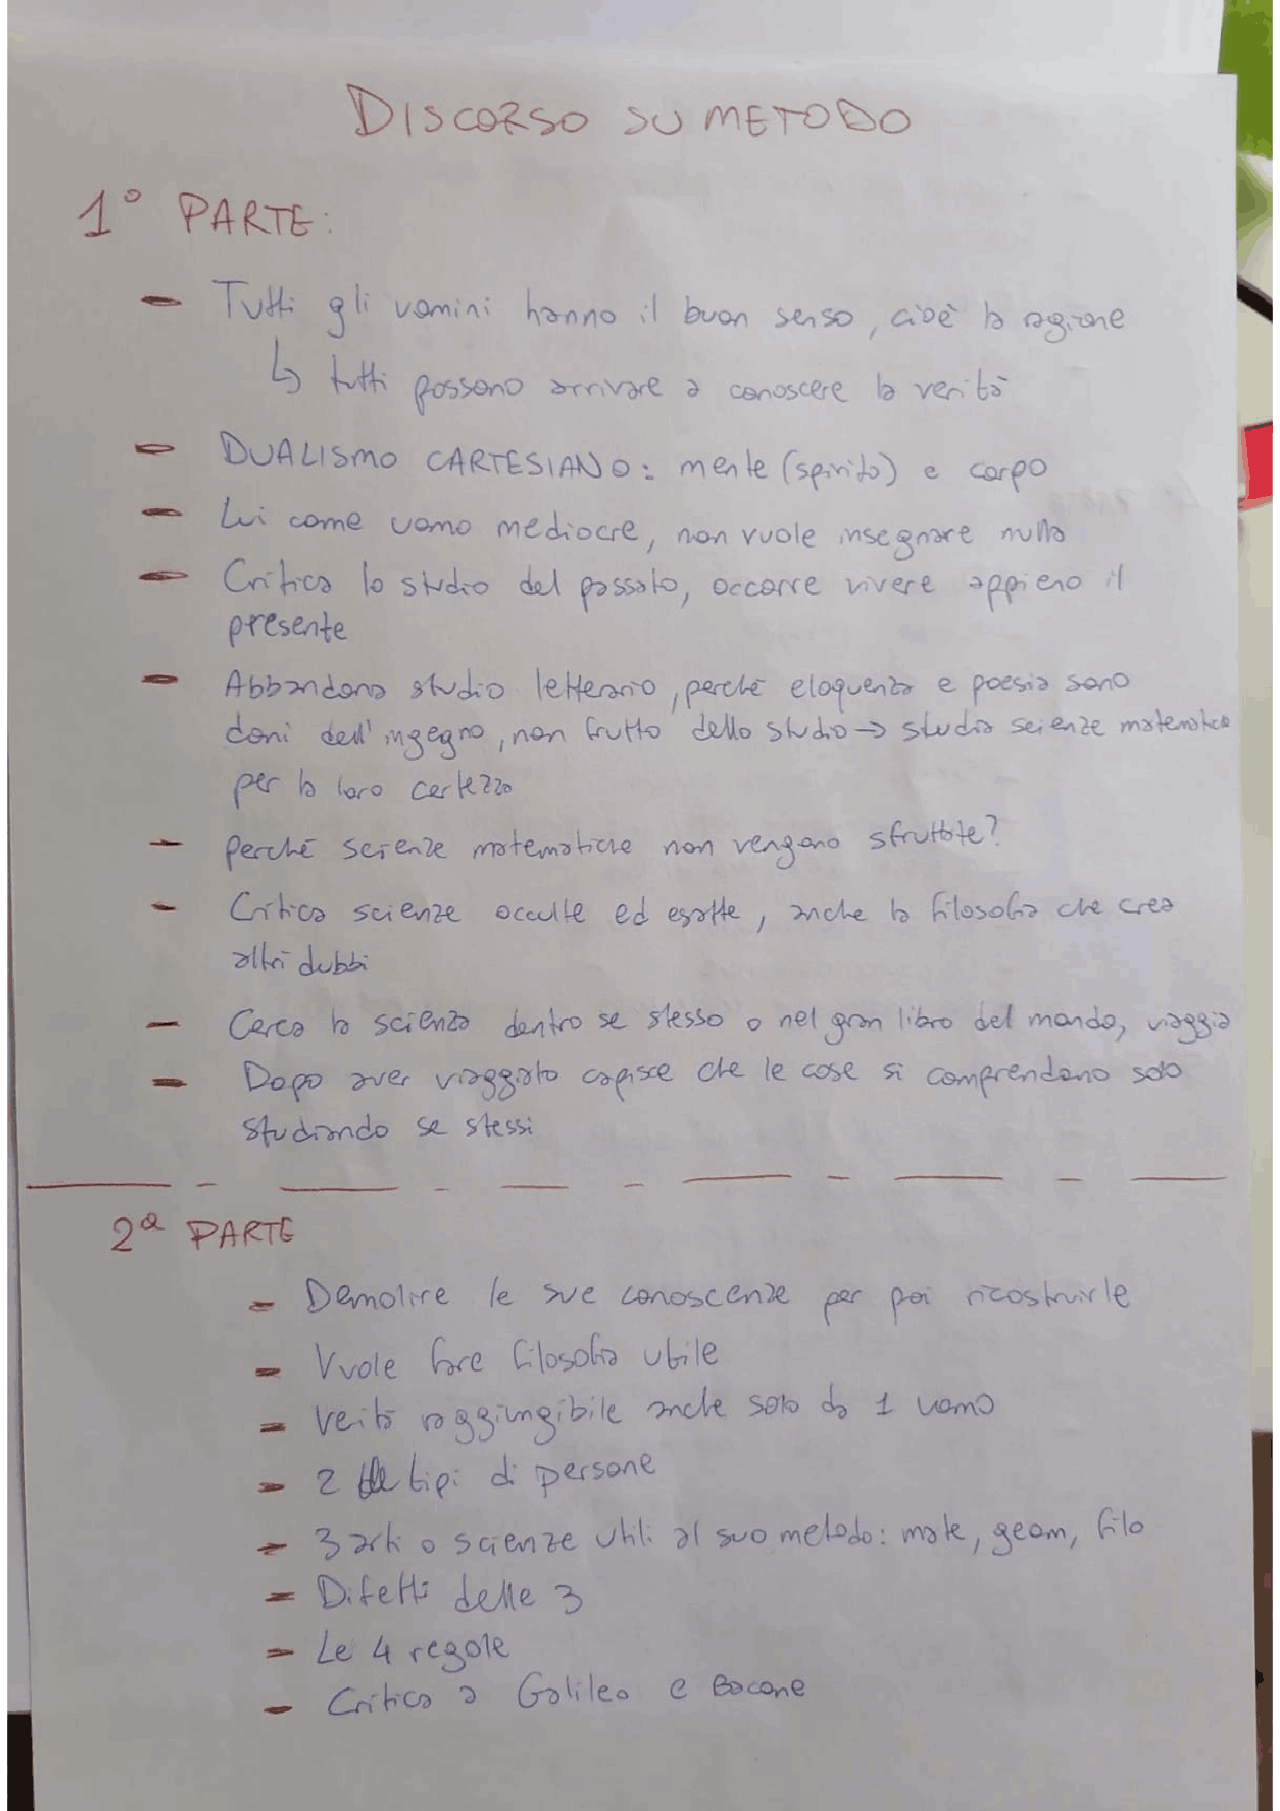 DISCORSO SU METODO
1° PARTE:
- Tutti gli uomini hanno il buon senso, cioè la ragione
↳ tutti possono arrivare a conoscere la verità
- DUALISMO CARTESIANO: mente (spirito) e corpo
- Lui come uomo mediocre, non vuole insegnare nulla
- Critica lo studio del passato, occorre vivere appieno il
presente
- Abbandona studio letterario, perché eloquenza e poesia sono
doni dell'ingegno, non frutto dello studio → studia scienze matematiche
per la loro certezza
- perché scienze matematiche non vengono sfruttate?
- Critica scienze occulte ed esatte, anche la filosofia che crea
altri dubbi
- Cerca la scienza dentro se stesso o nel gran libro del mondo, viaggia
- Dopo aver viaggiato capisce che le cose si comprendono solo
studiando se stessi
2ª PARTE
- Demolire le sue conoscenze per poi ricostruirle
- Vuole fare filosofia utile
- Verità raggiungibile anche solo da 1 uomo
- 2 tipi di persone
- 3 arti o scienze utili al suo metodo: mate, geom, filo
- Difetti delle 3
- Le 4 regole
- Critica a Galileo e Bacone